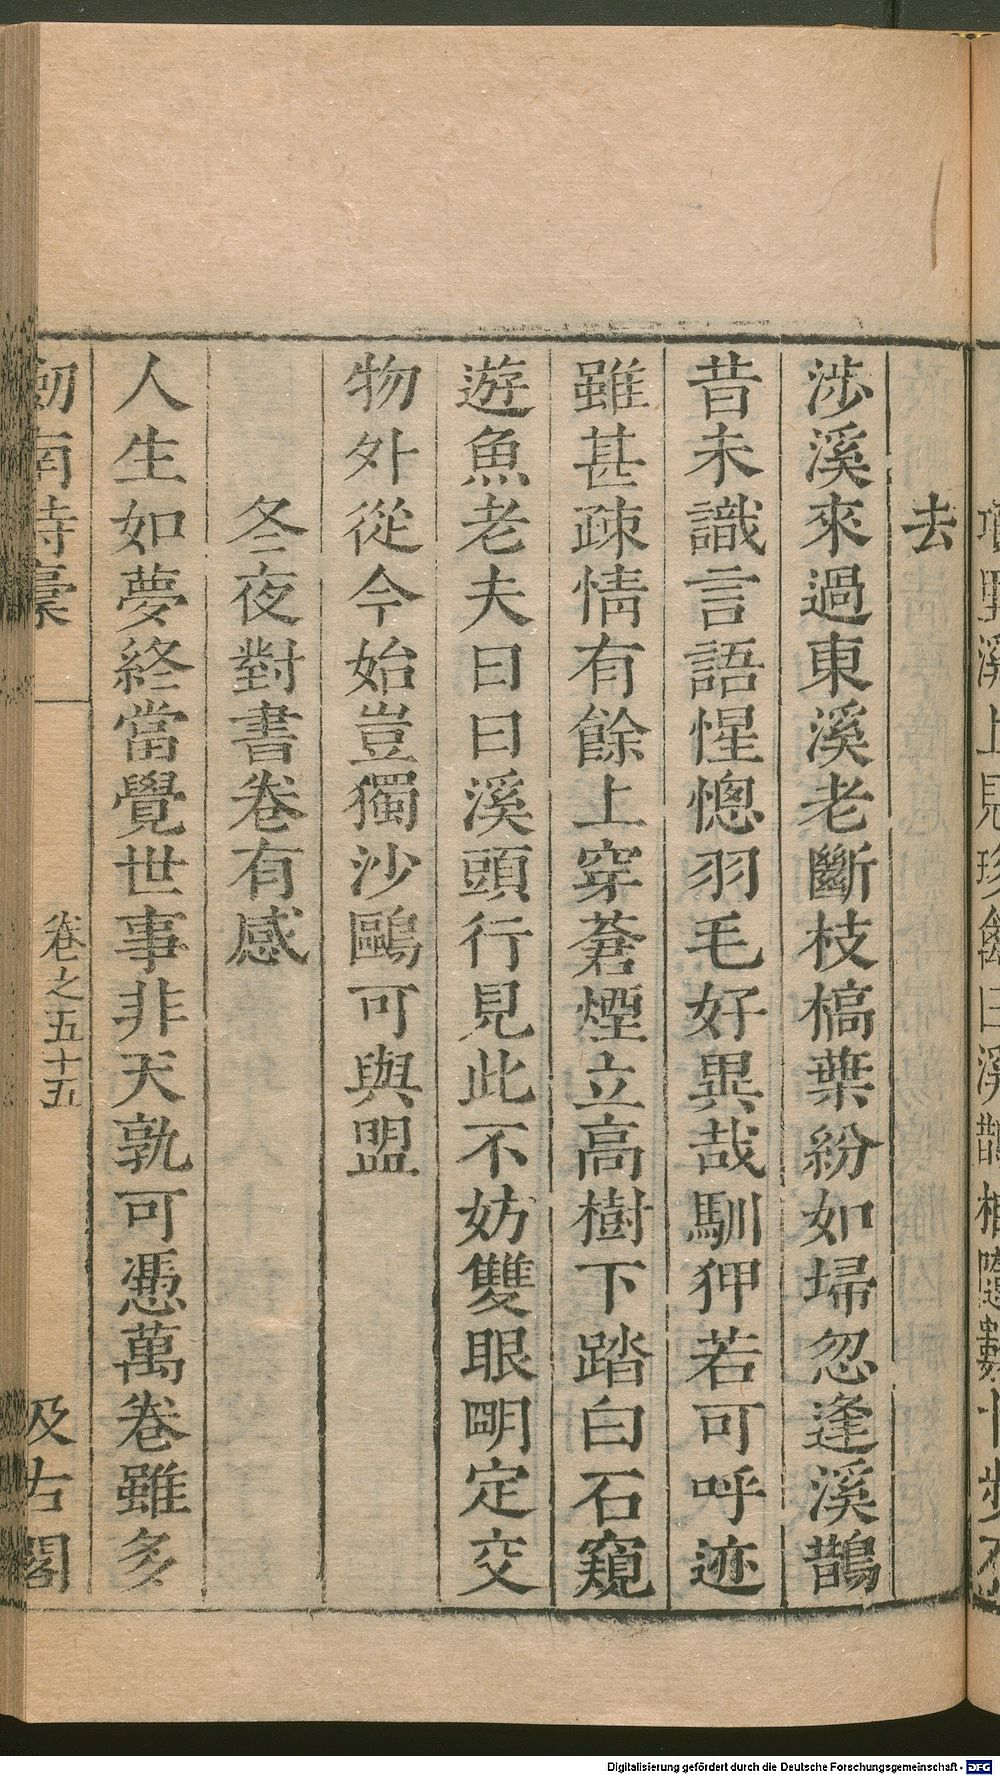 去
涉溪來過東溪老斷枝槁葉紛如埽忽逢溪鵲
昔未識言語惺憁羽毛好異哉馴狎若可呼迹
雖甚疎情有餘上穿蒼煙立高樹下踏白石窺
遊魚老夫日日溪頭行見此不妨雙眼明定交
物外從今始豈獨沙鷗可與盟
冬夜對書卷有感
人生如夢終當覺世事非天孰可憑萬卷雖多
劒南詩稾
卷之五十五
汲古閣
Digitalisierung gefördert durch die Deutsche Forschungsgemeinschaft - DFG